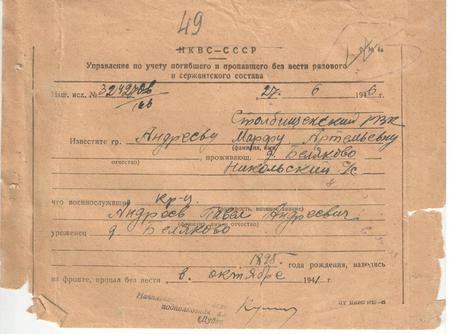 49
НКВС-СССР
Управление по учету погибшего и пропавшего без вести рядового
и сержантского состава
27. 6 1946
Столбищенский РВК
Известите гр. Андрееву Марфу Артемьевну
(фамилия, имя
отчество) , проживающ. д. Беляково
Никольский с/с
что военнослужащий кр-ц
Андреев Павел Андреевич
уроженец д. Беляково
1895 года рождения, находясь
на фронте, пропал без вести в октябре 1941 г.